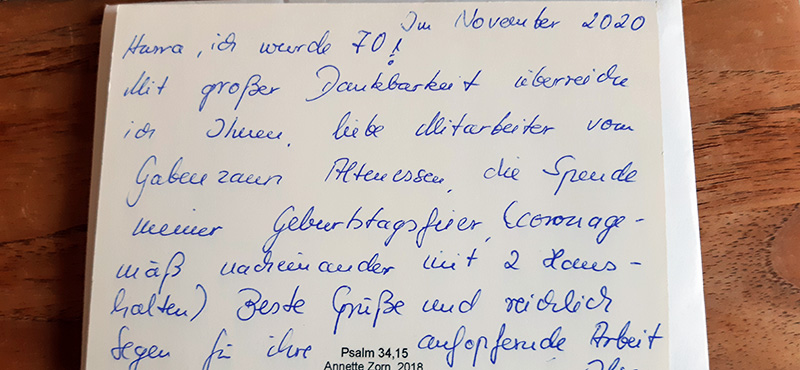 Im November 2020
Hurra, ich wurde 70!
Mit großer Dankbarkeit überreiche
ich Ihnen, liebe Mitarbeiter vom
Gabenzaun Altenessen, die Spende
meiner Geburtstagsfeier, (coronage-
mäß nacheinander mit 2 Haus-
halten) Beste Grüße und reichlich
Segen für ihre aufopfernde Arbeit
Psalm 34,15
Annette Zorn, 2018